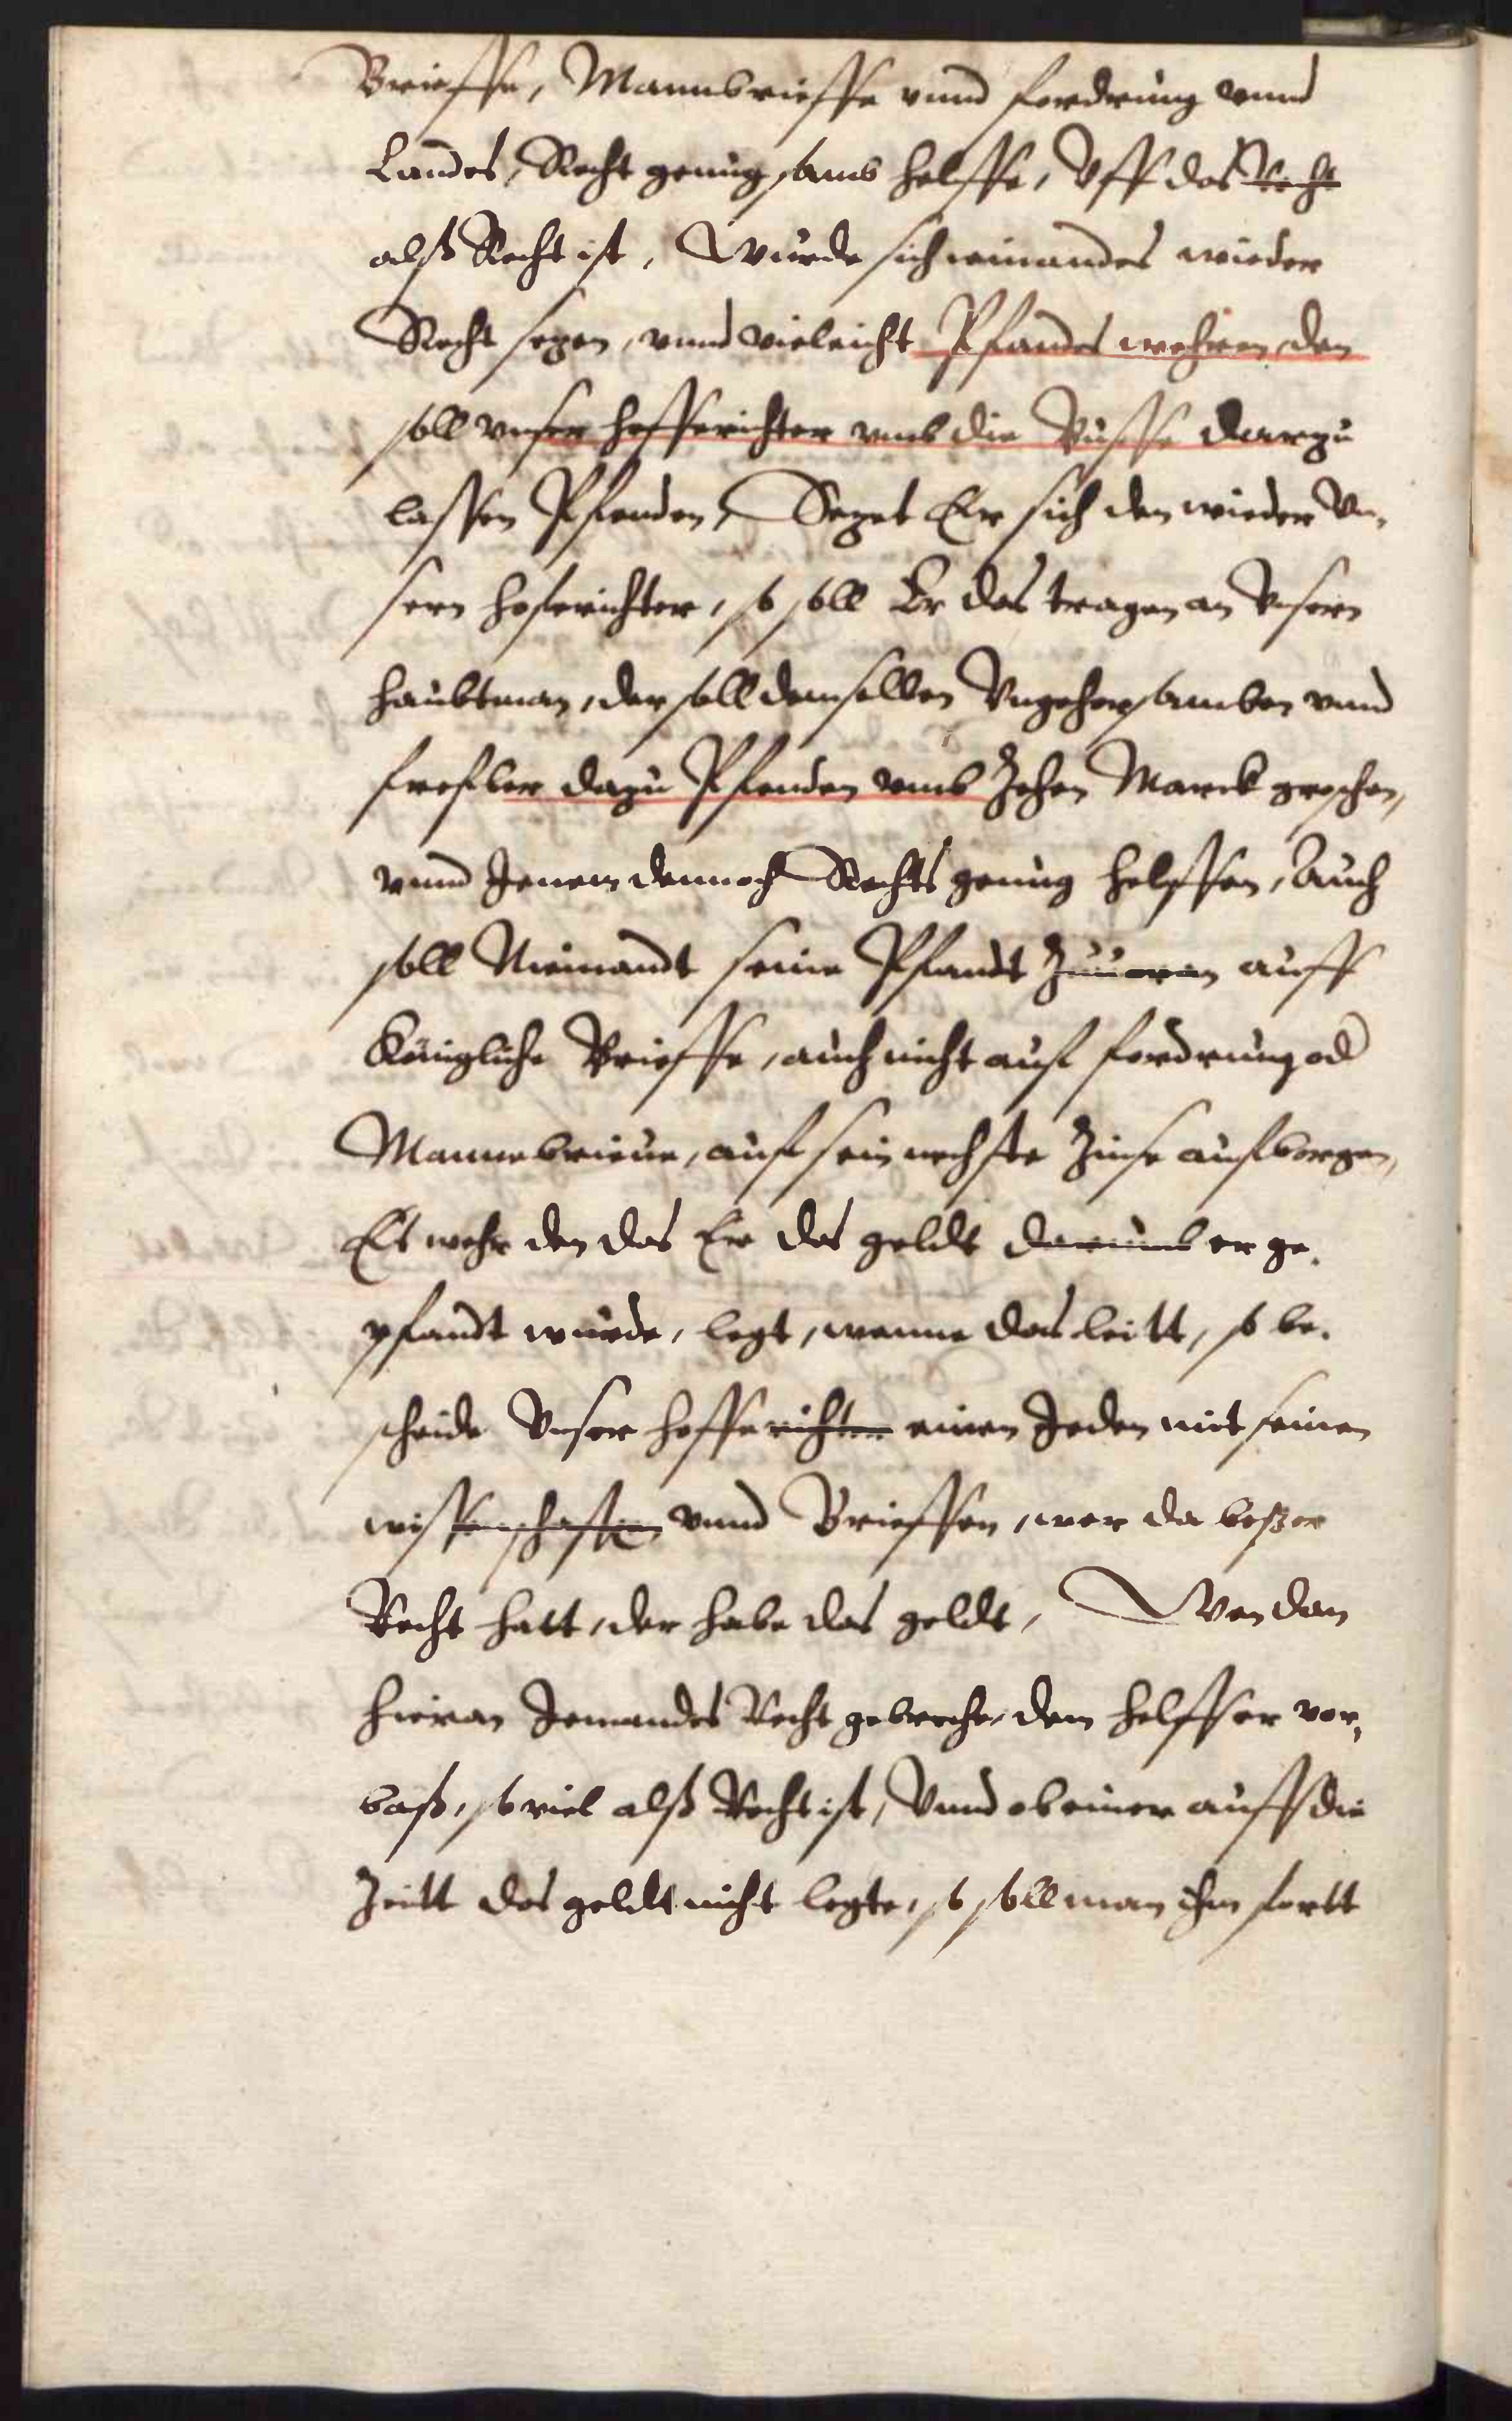 Brieffe, Mannbrieffe vnnd fordrung vnnd
Landes, Recht genugsamb helffe, Vff das Recht
alß Recht ist, Wurde sich iemandes wieder
Recht sezen, vnnd vieleicht Pfandes wehren, den
soll vnser hofferichter vmb die Busse darzu
lassen Pfenden, Sezet Er sich den wieder Vn,
sern hoferichter, so soll Er das tragen an Vnsern
haubtman, der soll demselben Vngehorsamben vnnd
frefler dazu Pfenden vmb Zehen Marck groschen,
vnnd Jenem dennoch Rechts genug helffen, Auch
soll Niemandt seine Pfandt auff
Königliche Brieffe, auch nicht auf fordrung od
Mannebrieue, auf sein nechste Zinse aufborgen,
Es wehr den das Er das geldt darumb er ge,
pfandt wurde, legt, wanne das leitt, so be,
scheide Vnser hofferichter einen Jeden mit seinen
wissenschafften vnnd Brieffen, wer da beßer
Recht hatt, der habe das geldt, Wen dan
hieran Jemandes Recht gebreche, dem helffe er vor,
baß, so viel alß Recht ist, Vnnd ob einer auff die
Zeitt das geldt nicht legte, so soll man ihn fortt